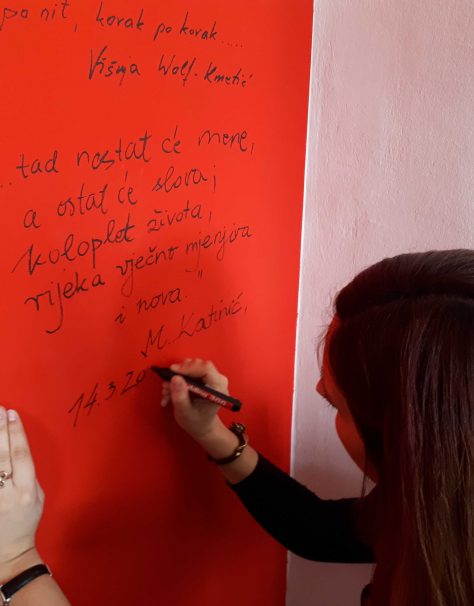 po nit, korak po korak.....
Višnja Wolf-Kmetić
...tad nestat će mene,
a ostat će slova;
koloplet života,
rijeka vječno mjenjiva
i nova."
M. Katinić,
14.3.20